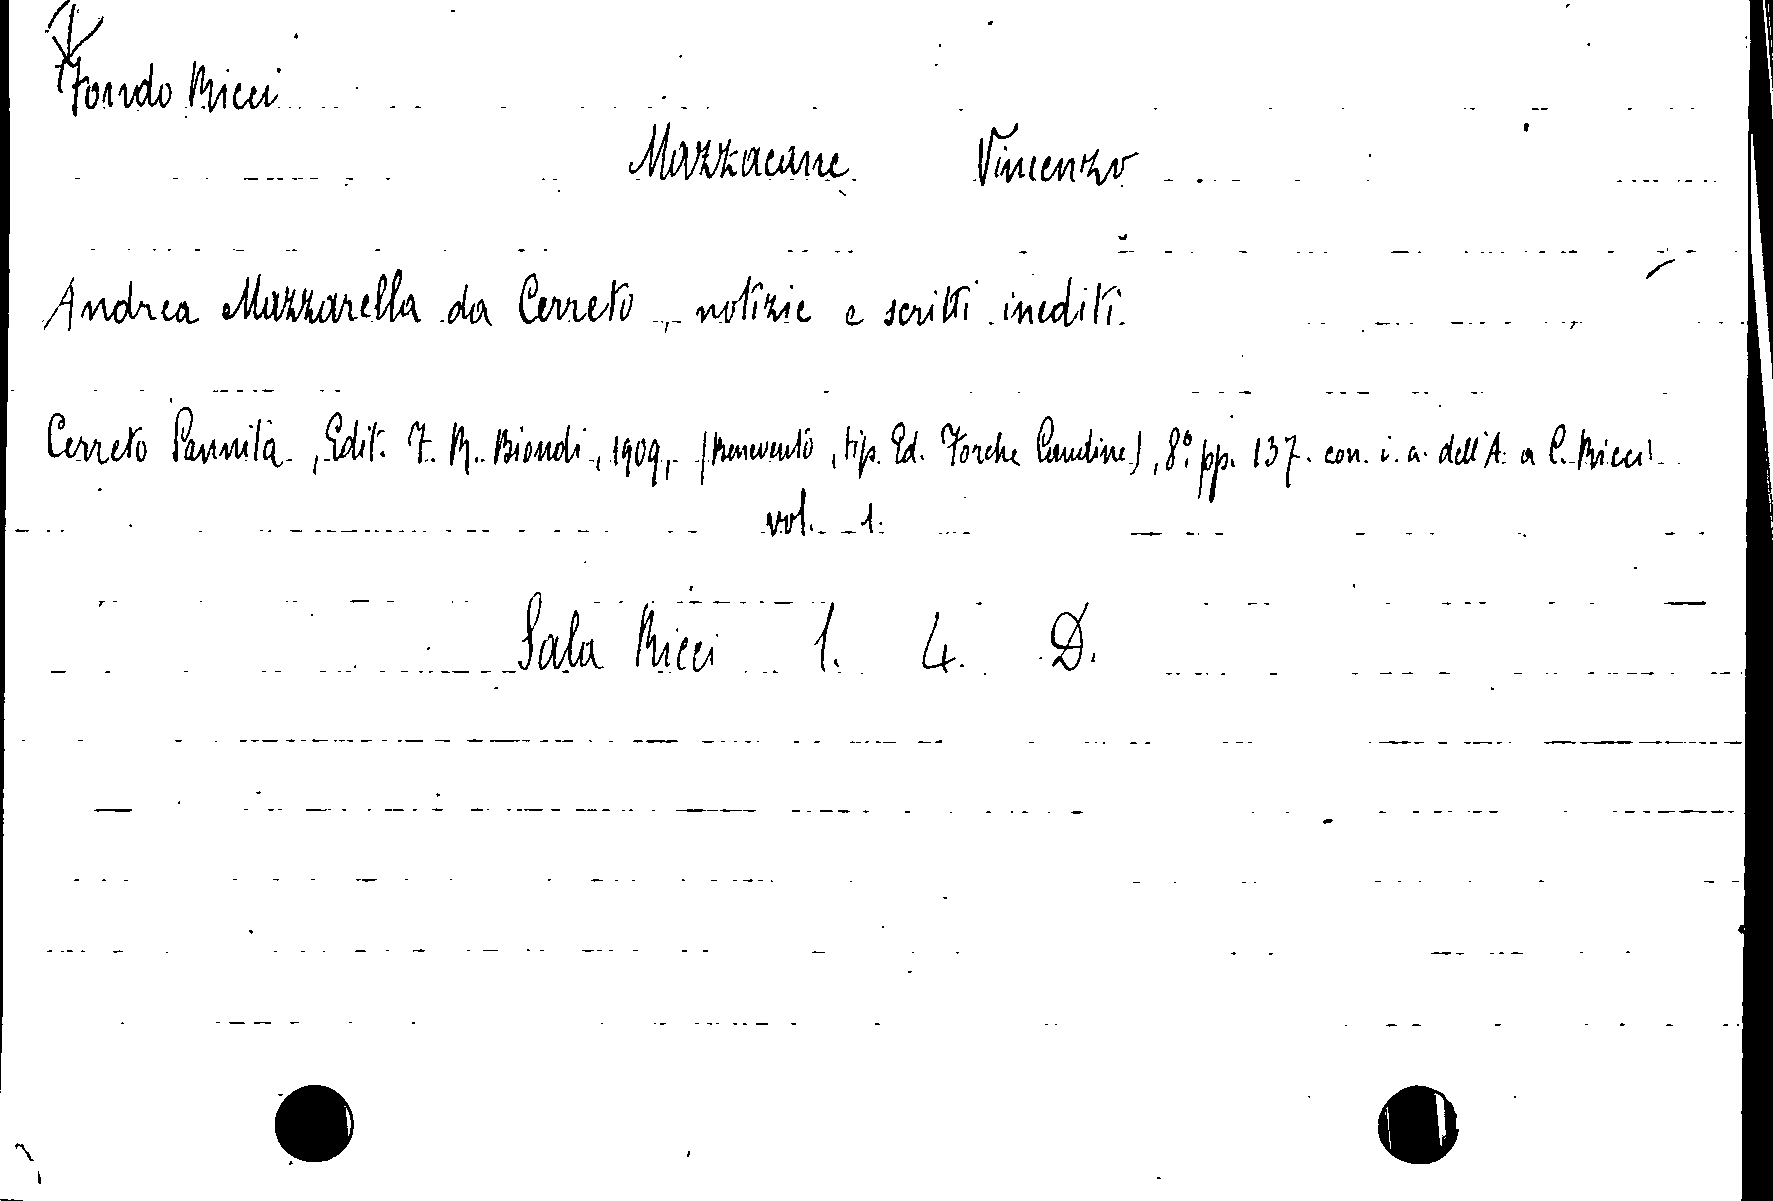 Fondo Ricci
Mazzacane Vincenzo
Andrea Mazzarella da Cerreto, notizie e scritti inediti.
Cerreto Sannita, Edit. F. R. Biondi, 1909, (Benevento, tip. Ed. Forche Caudine), 8° pp. 137. con i. a. dell'A. a C. Ricci
vol. 1.
Sala Ricci 1. 4. D.